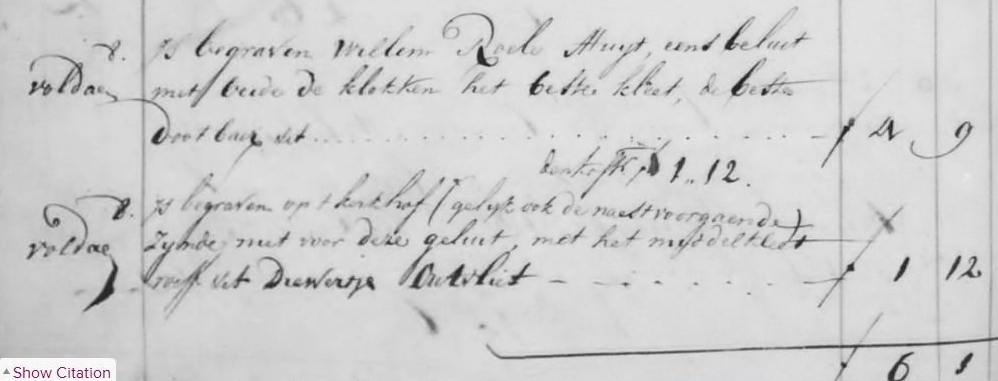 8. Is begraven Willem Roele Huyt, eens beluit
voldaen met beide de klokken het beste kleet, de beste
Doot baer dit f 4 9
1.. 12.
8. Is begraven op t kerkhof (gelijk ook de naestvoorgaende)
voldaen Zynde niet voor deze geluit, met het myddelkleet
dit Diewertje f 1 12
f 6 1
Show Citation